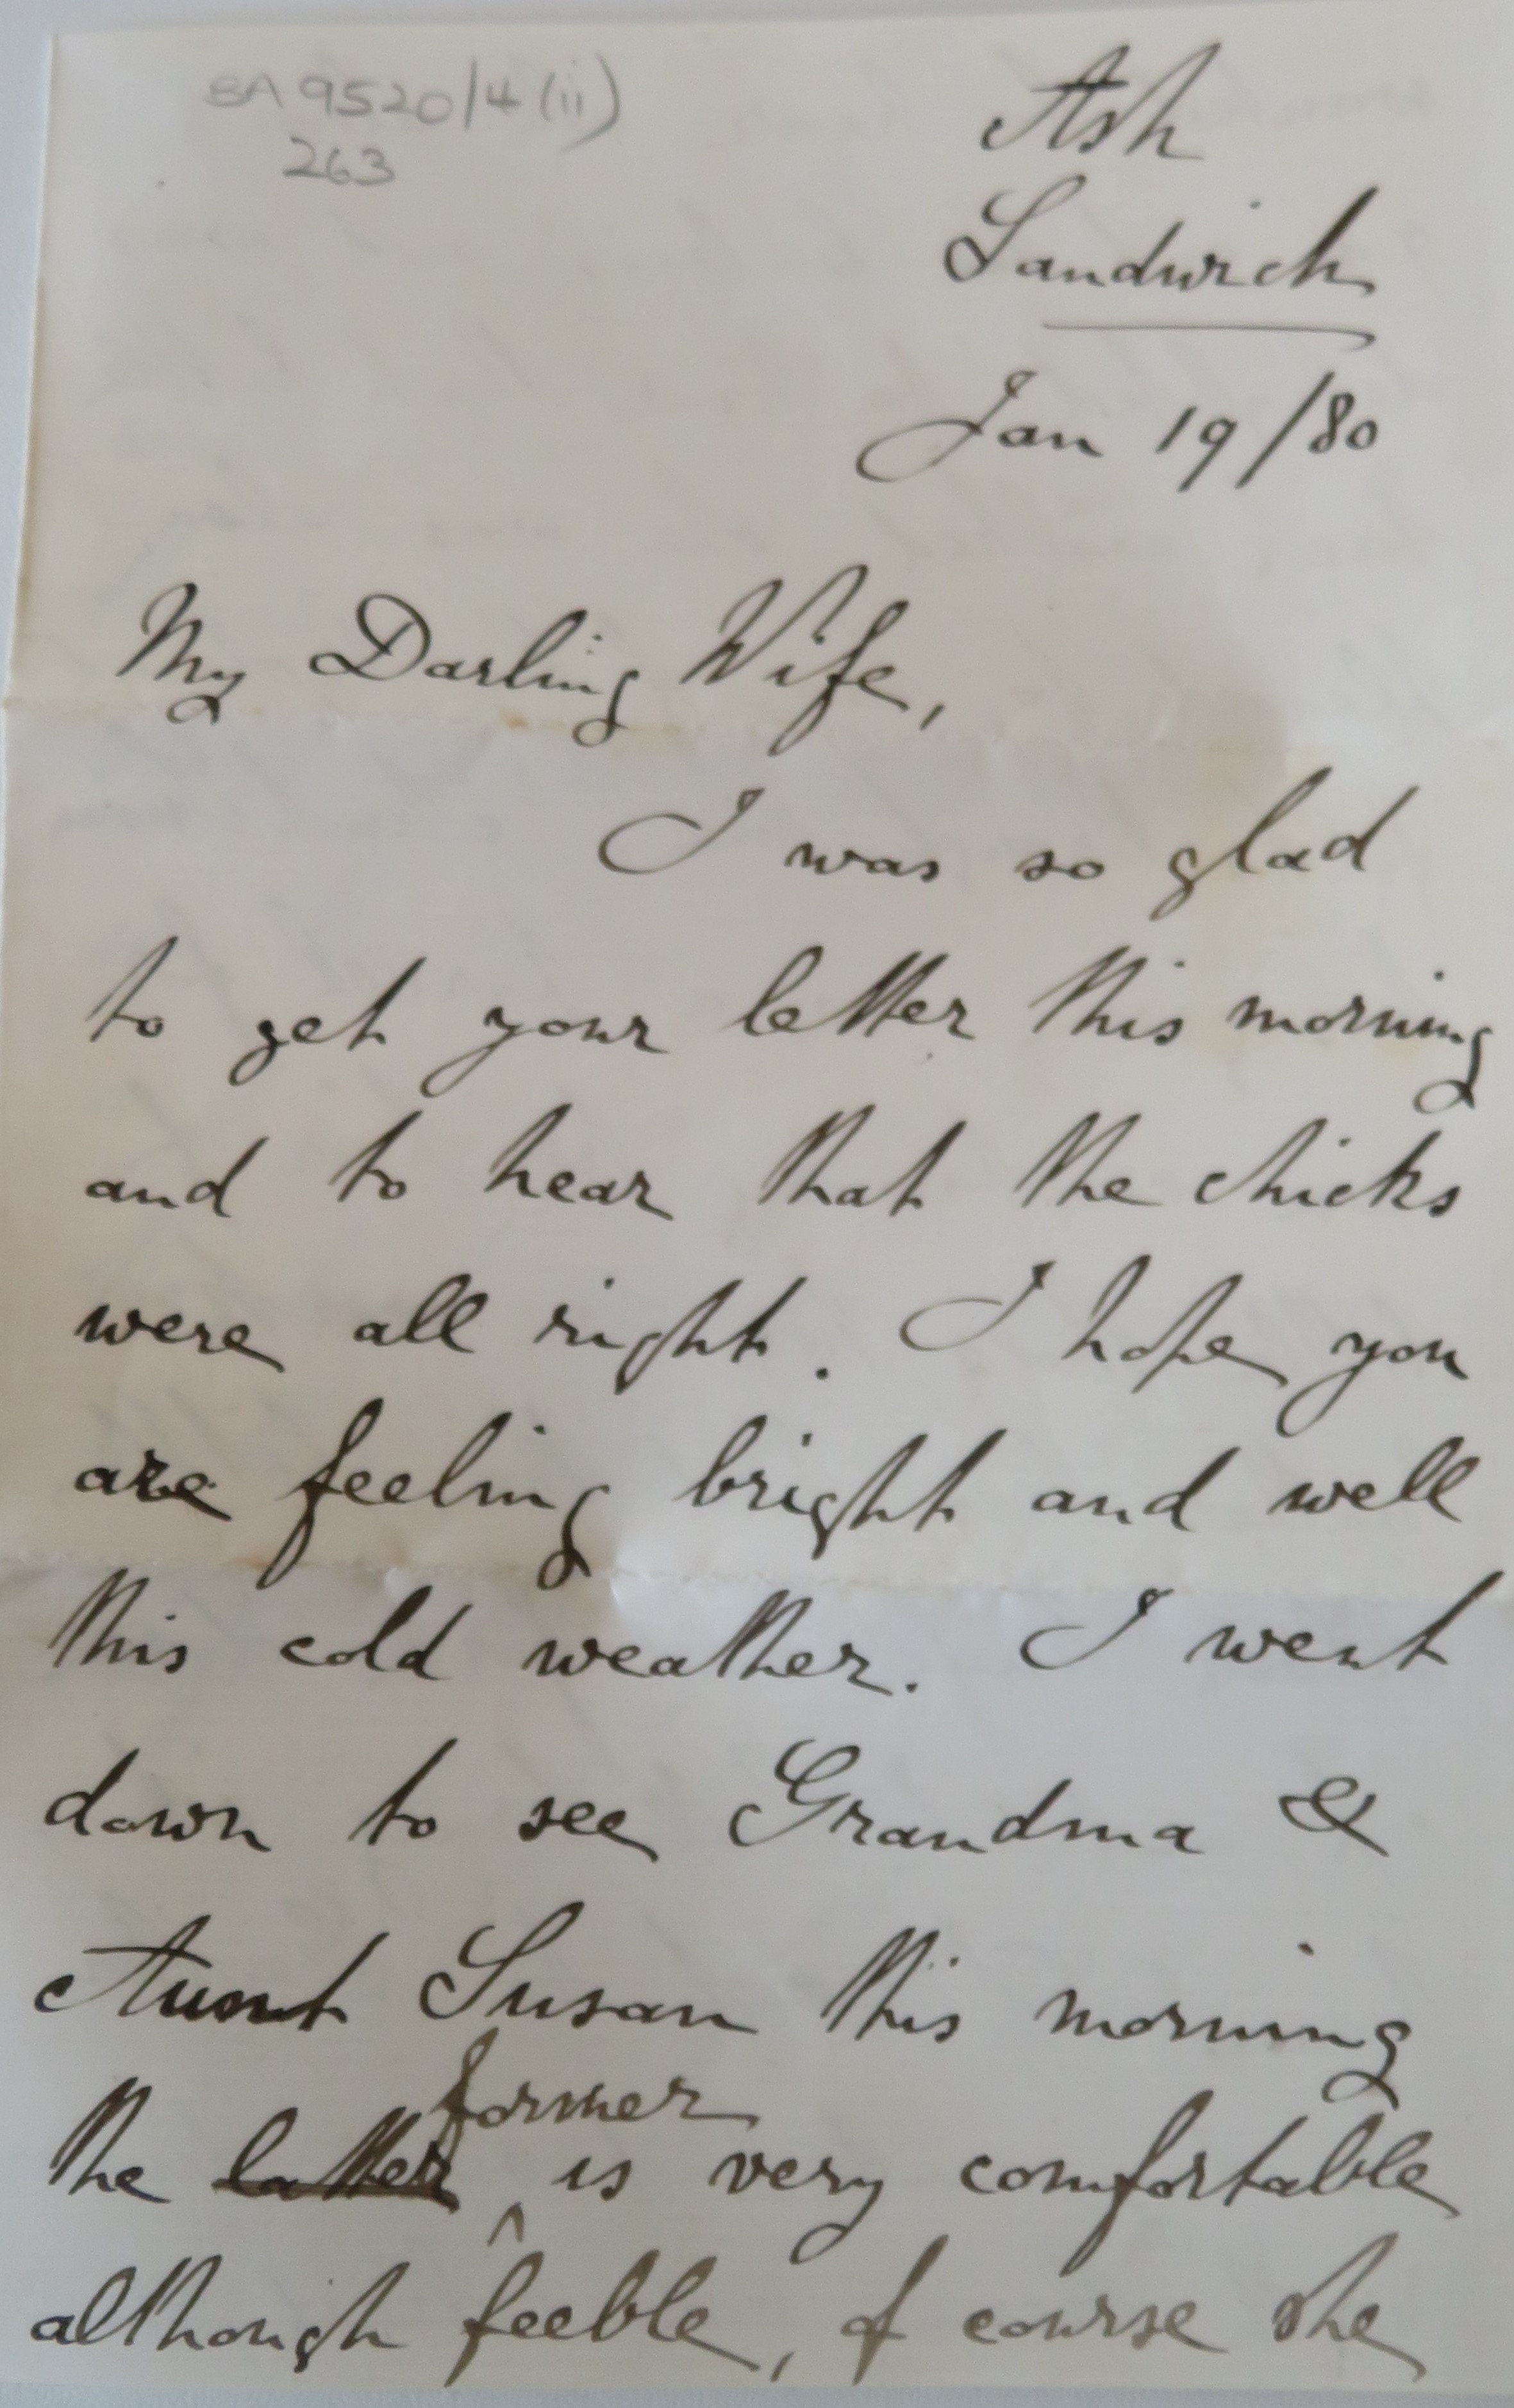 BA 9520/4 (ii)
263
Ash
Sandwich
Jan 19/80
My Darling Wife,
I was so glad
to get your letter this morning
and to hear that the chicks
were all right. I hope you
are feeling bright and well
this cold weather. I went
down to see Grandma &
Aunt Susan this morning
former
the latter is very comfortable
although feeble, of course she